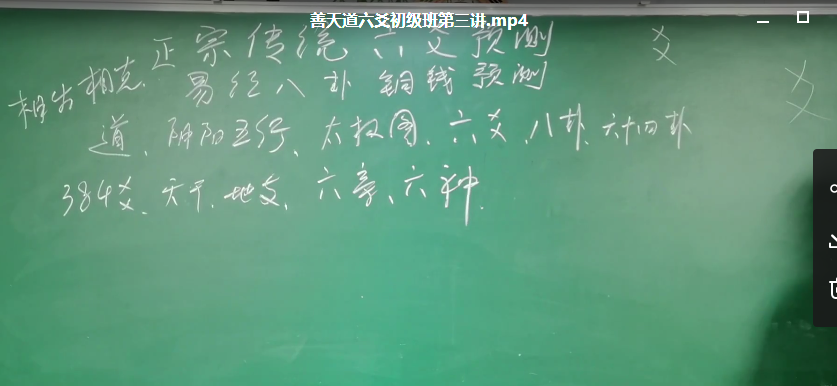 善天道六爻初级班第三讲.mp4
正宗传统六爻预测
爻
相生相克
易经八卦铜钱预测
爻
道、阴阳五行、太极图、六爻、八卦、六十四卦
384爻、天干、地支、六亲、六神.